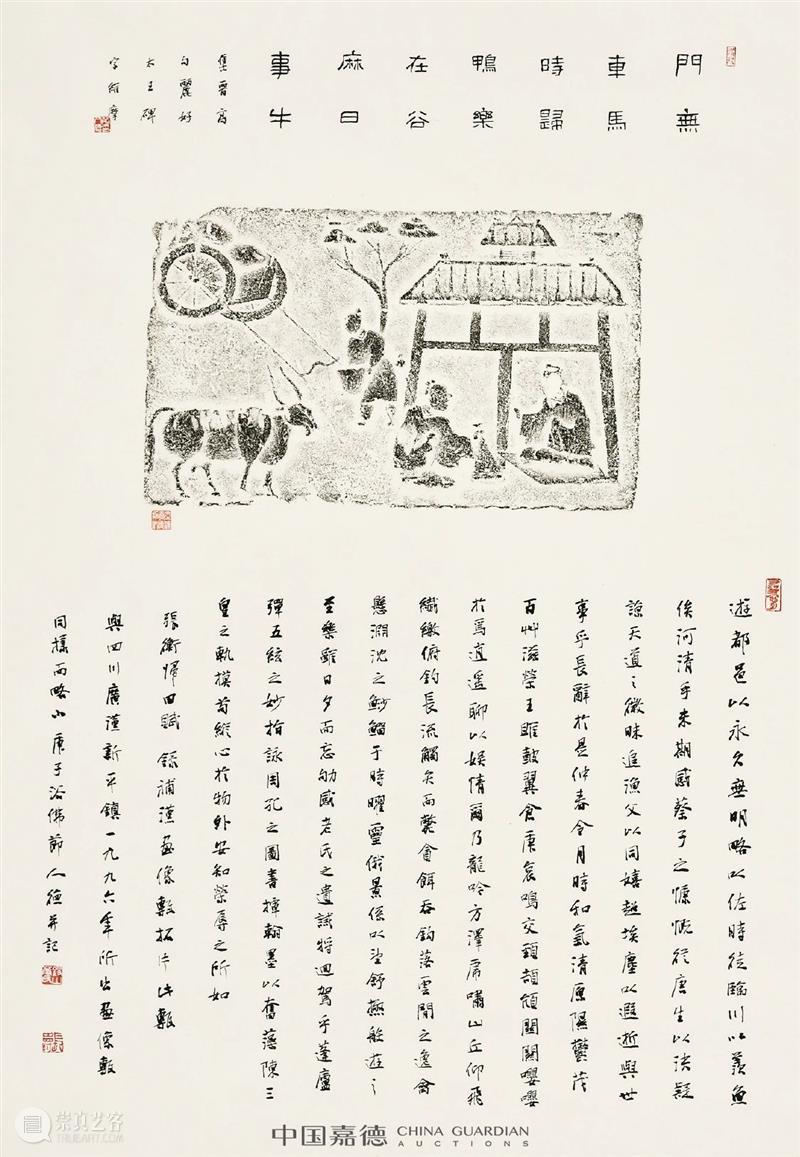 門無
車馬
時歸
鴨樂
在谷
麻日
事牛
集晉高
句麗好
太王碑
字維摩
遊都邑以永久無明略以佐時徒臨川以羨魚
俟河清乎未期感蔡子之慷慨從唐生以決疑
諒天道之微昧追漁父以同嬉超埃塵以遐逝與世
事乎長辭於是仲春令月時和氣清原隰鬱茂
百艸滋榮王雎鼓翼倉庚哀鳴交頸頡頏關關嚶嚶
於焉逍遙聊以娛情爾乃龍吟方澤虎嘯山丘仰飛
纖繳俯釣長流觸矢而斃貪餌吞鈎落雲間之逸禽
懸淵沈之魦鰡于時曜靈俄景係以望舒極般遊之
至樂雖日夕而忘劬感老氏之遺誡將迴駕乎蓬廬
彈五絃之妙指詠周孔之圖書揮翰墨以奮藻陳三
皇之軌模苟縱心於物外安知榮辱之所如
張衡歸田賦 錄補漢畫像磚拓片此磚
與四川廣漢新平鎮一九九六年所出畫像磚
同樣而略小庚子浴佛節人并記
崇真艺客
TRUEART.COM
中国嘉德 CHINA GUARDIAN
AUCTIONS